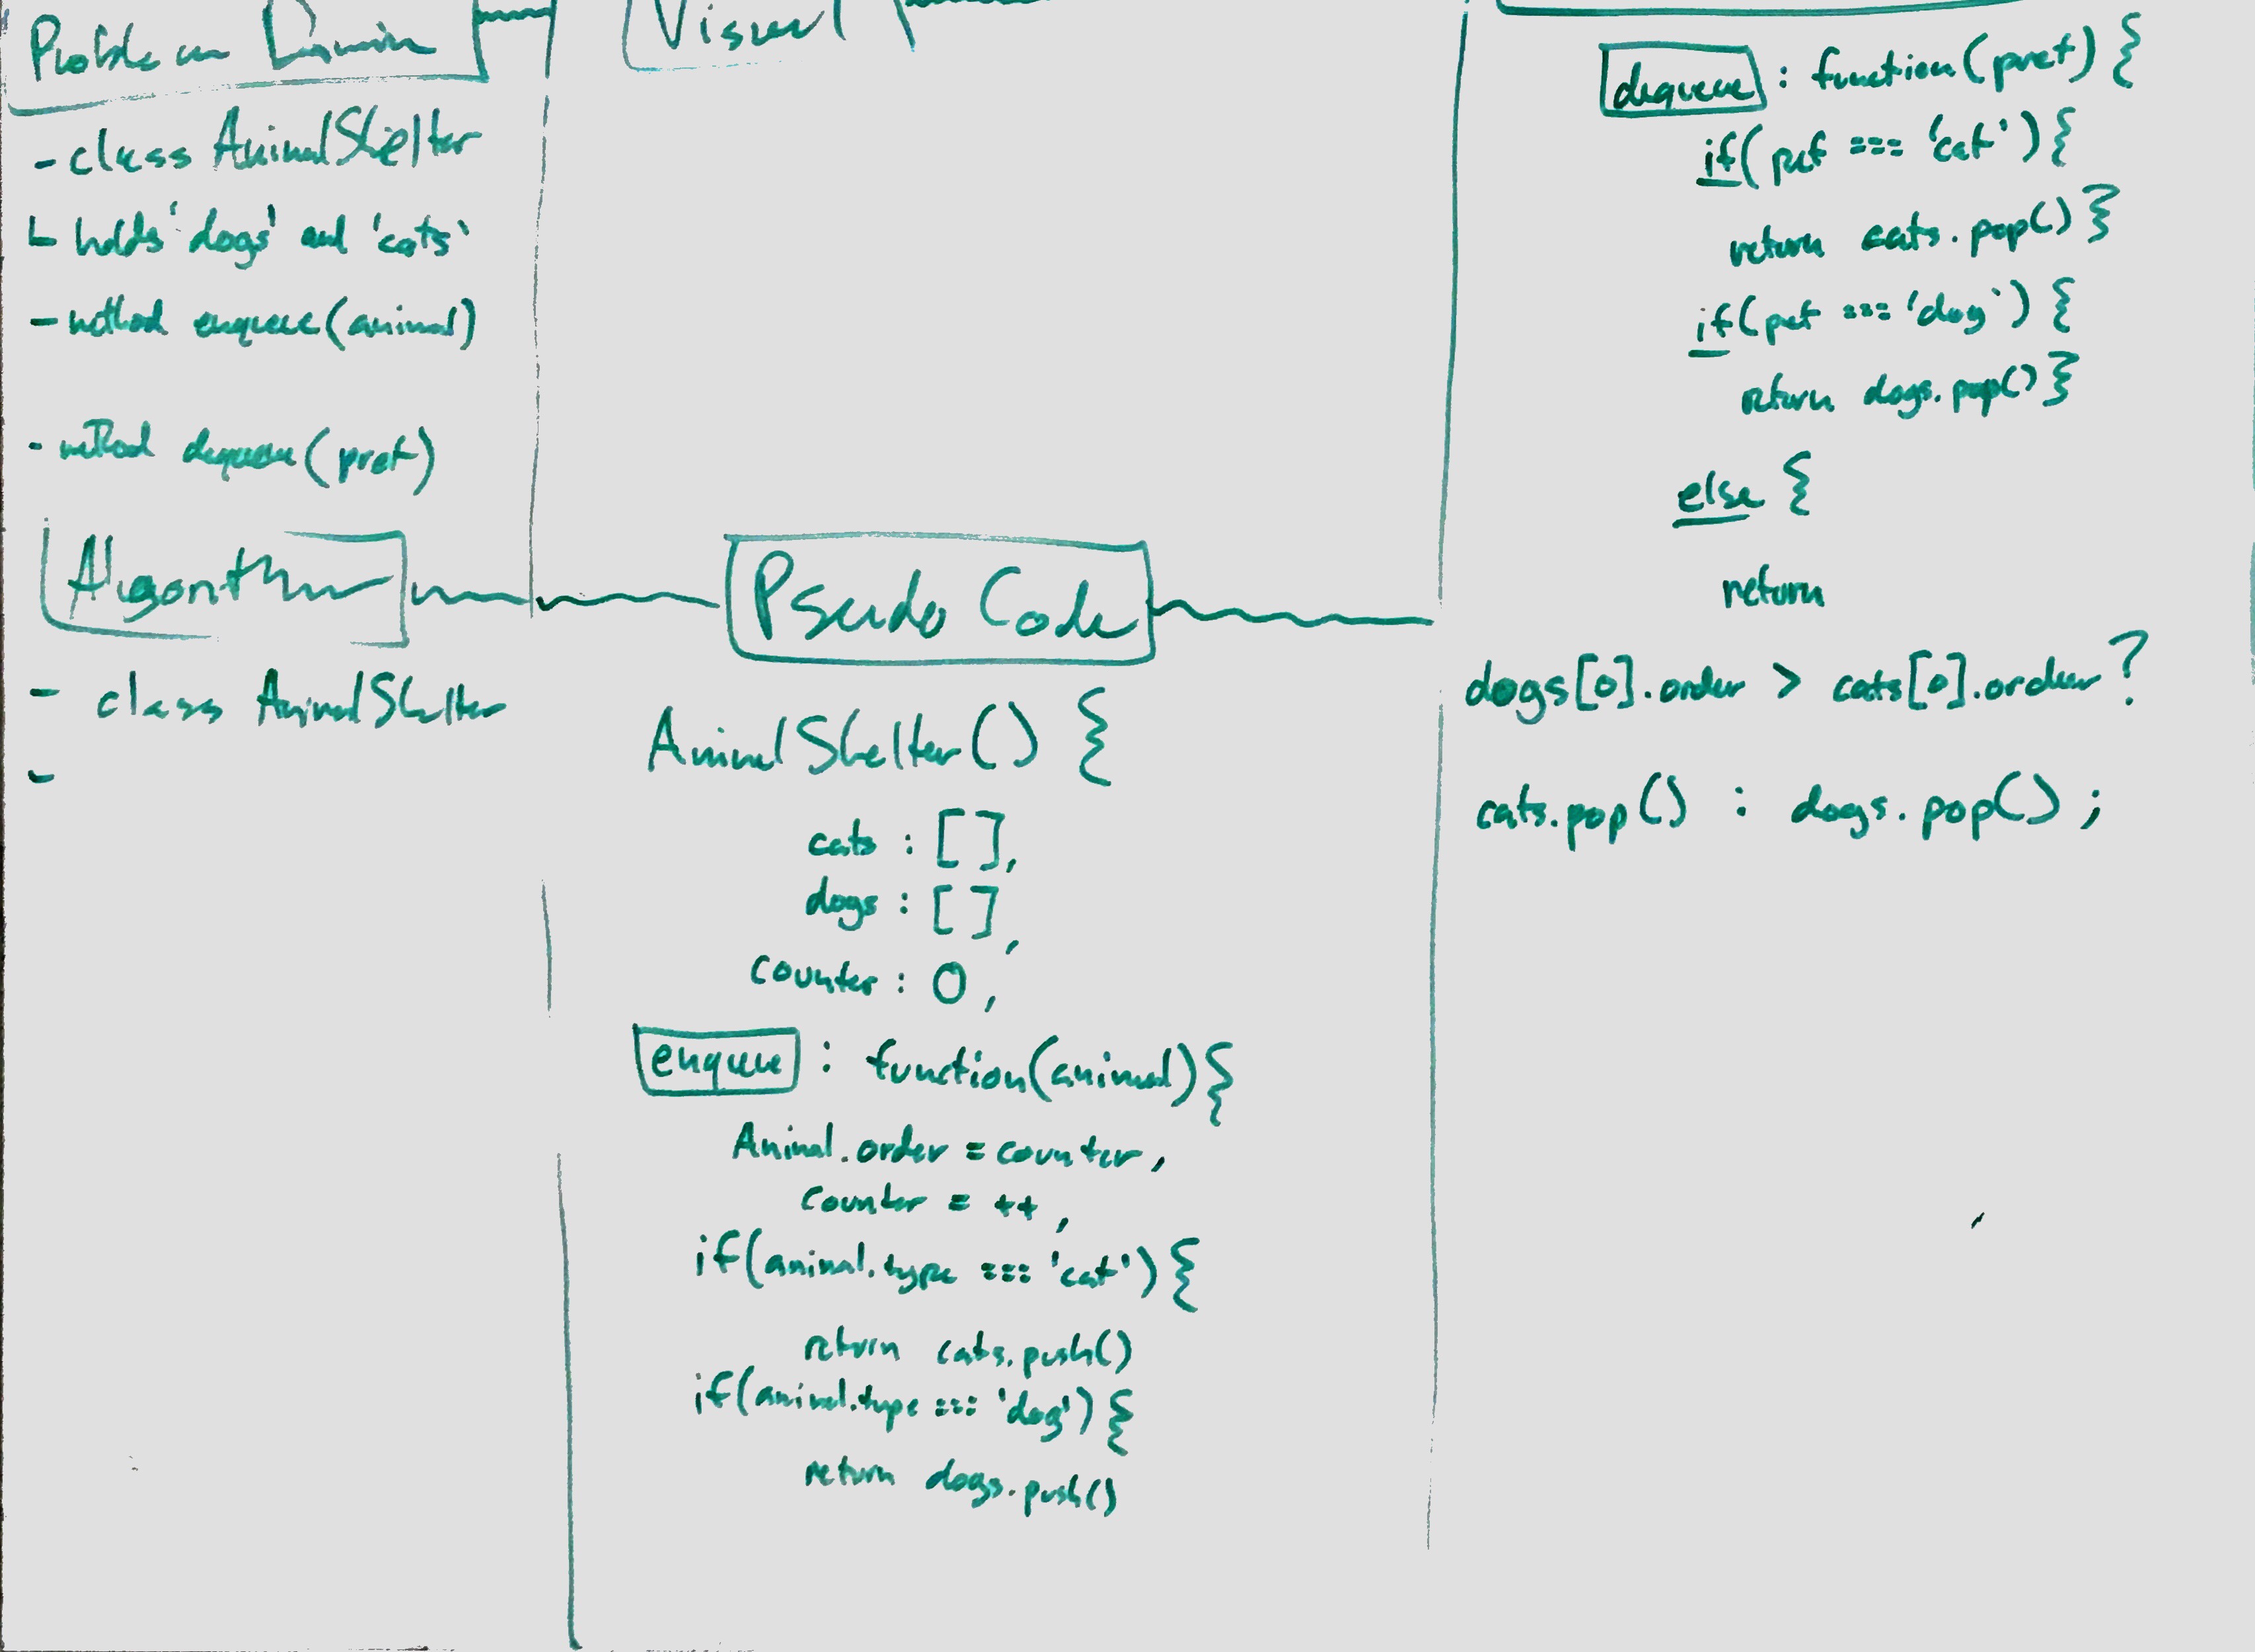 Problem Domain
- class AnimalShelter
holds 'dogs' and 'cats'
- method enqueue(animal)
- method dequeue(pref)
Algorithm
- class AnimalShelter
-
Visual
Pseudo Code
AnimalShelter() {
cats : [ ],
dogs : [ ],
counter : 0,
enqueue : function(animal){
Animal.order = counter,
counter = ++,
if(animal.type === 'cat'){
return cats.push()
if(animal.type === 'dog'){
return dogs.push()
dequeue : function(pref){
if(pref === 'cat'){
return cats.pop()}
if(pref === 'dog'){
return dogs.pop()}
else {
return
dogs[0].order > cats[0].order?
cats.pop() : dogs.pop();